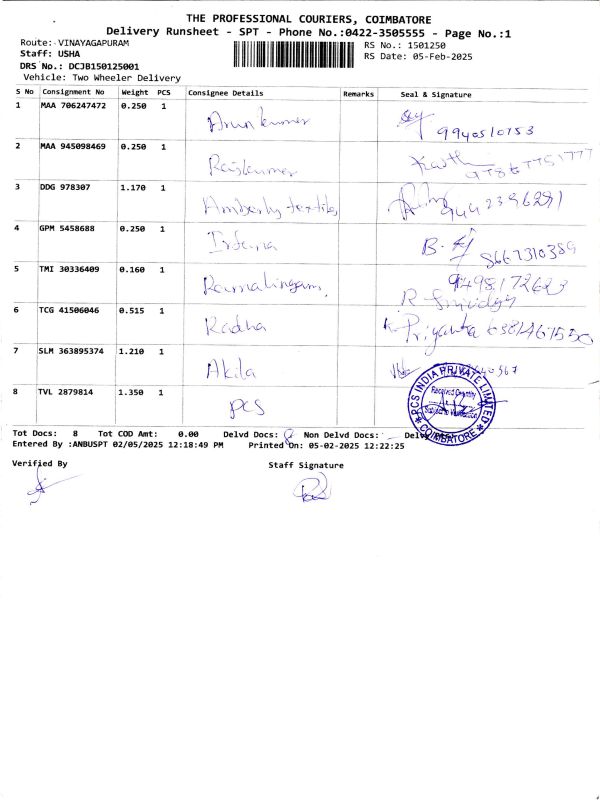 THE PROFESSIONAL COURIERS, COIMBATORE
Delivery Runsheet - SPT - Phone No.:0422-3505555 - Page No.:1
Route: VINAYAGAPURAM
RS No.: 1501250
Staff: USHA
RS Date: 05-Feb-2025
DRS No.: DCJB150125001
Vehicle: Two Wheeler Delivery
S No Consignment No Weight PCS Consignee Details Remarks Seal & Signature
1 MAA 706247472 0.250 1 Arunkumar 9940510753
2 MAA 945098469 0.250 1 Rajkumar
3 DDG 978307 1.170 1 Amberly textiles 9442396291
4 GPM 5458688 0.250 1 8667310389
5 TMI 30336409 0.160 1 Ramalingam, 9498172623
R Srividya
6 TCG 41506046 0.515 1 Radha Priyanka
7 SLM 363895374 1.210 1 Akila
8 TVL 2879814 1.350 1 PCS
PCS INDIA PRIVATE LIMITED
Received Quantity
Subject to Verification
COIMBATORE
Tot Docs: 8 Tot COD Amt: 0.00 Delvd Docs: 8 Non Delvd Docs:
Entered By :ANBUSPT 02/05/2025 12:18:49 PM Printed On: 05-02-2025 12:22:25
Verified By Staff Signature